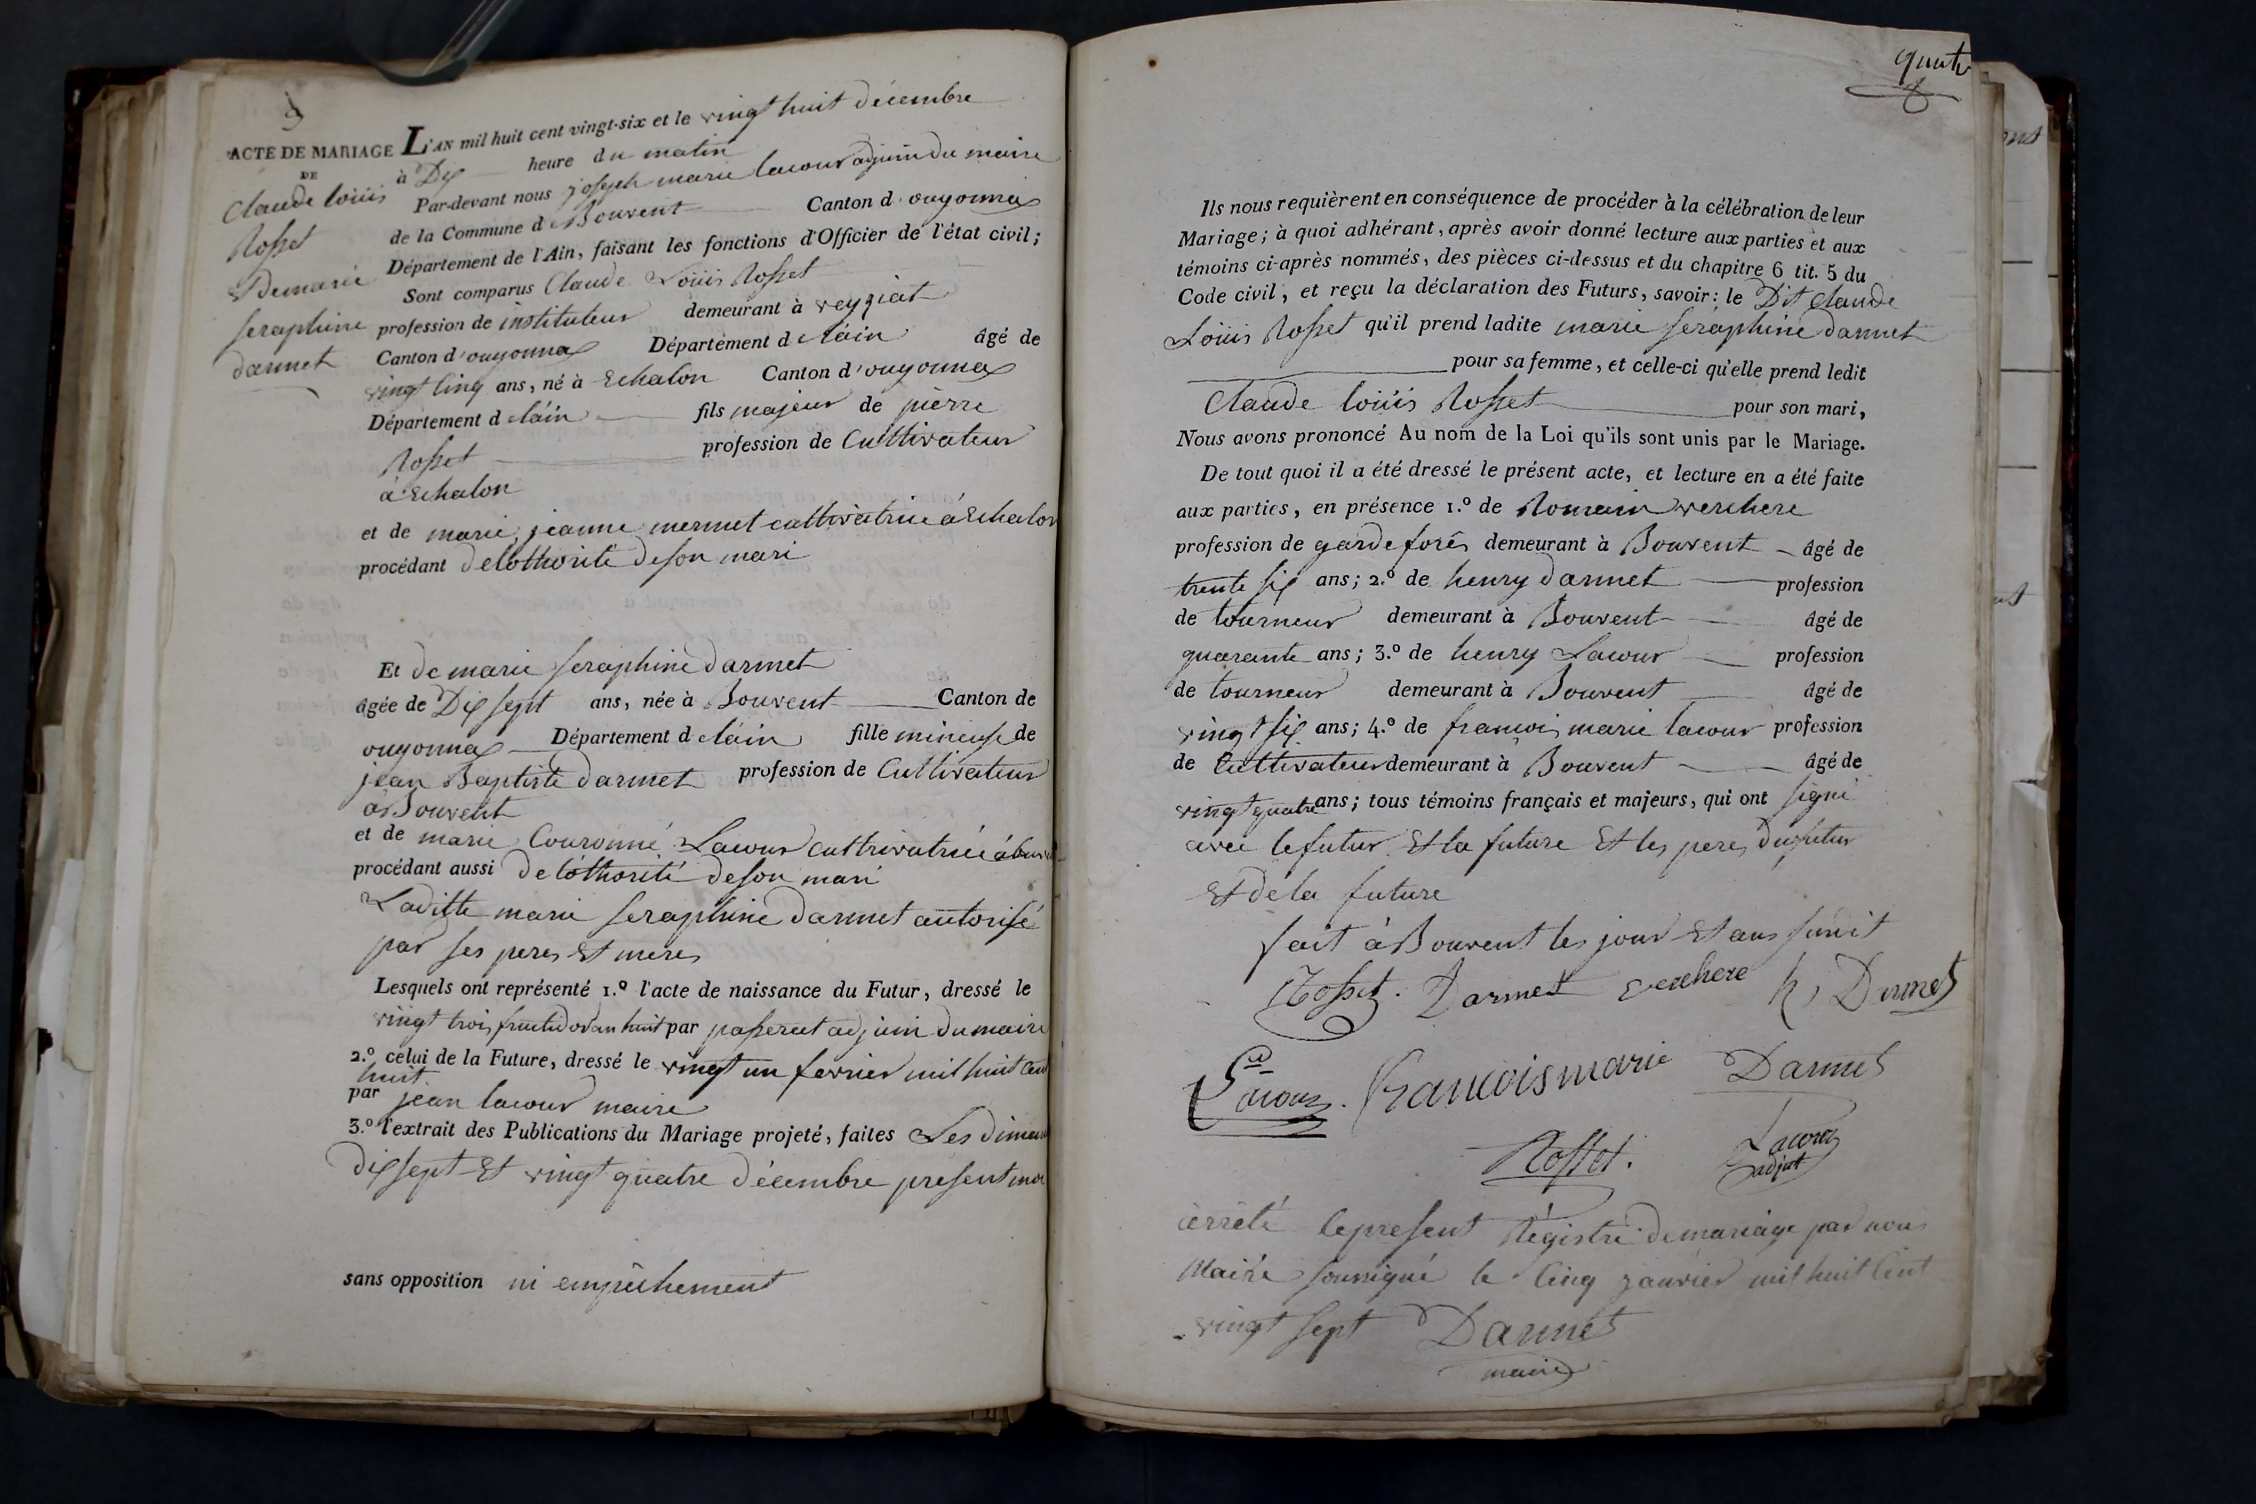 9
ACTE DE MARIAGE
DE
Claude loüis
Rosset
Et De marie
seraphine
darmet
L'AN mil huit cent vingt-six et le vingt huit décembre
à Dix heure du matin
Par-devant nous joseph marie lacour adjoin du maire
de la Commune d Bouvent Canton d'ouyonnax
Département de l'Ain, faisant les fonctions d'Officier de l'état civil;
Sont comparus Claude Loüis Rosset
profession de instituteur demeurant à veyziat
Canton d'ouyonnax Département d elâin âgé de
vingt cinq ans, né à Echalon Canton d'ouyonnax
Département d elâin fils majeur de pierre
Rosset profession de Cultivateur
à Echalon
et de marie jeanne mermet cultivatrice à Echalon
procédant delothorité deson mari
Et de marie seraphine darmet
âgée de Dix sept ans, née à Bouvent Canton de
ouyonnax Département d elâin fille mineuse de
jean Baptiste darmet profession de Cultivateur
à Bouvent
et de marie Couronné Lacour cultrivatricé à
procédant aussi de lóthorité deson mari
Laditte marie seraphine darmet autorisé
par ses peres Et meres
Lesquels ont représenté 1.º l'acte de naissance du Futur, dressé le
vingt trois fructidor an huit par passerat adjoin du maire
2.º celui de la Future, dressé le vingt un fevrier mil huit cent
huit
par jean lacour maire
3.º l'extrait des Publications du Mariage projeté, faites Les
dix sept Et vingt quatre décembre présent
sans opposition ni empêchement
quatre
Ils nous requièrent en conséquence de procéder à la célébration de leur
Mariage; à quoi adhérant, après avoir donné lecture aux parties et aux
témoins ci-après nommés, des pièces ci-dessus et du chapitre 6 tit. 5 du
Code civil, et reçu la déclaration des Futurs, savoir: le Dit Claude
Loüis Rosset qu'il prend ladite marie seraphine darmet
pour sa femme, et celle-ci qu'elle prend ledit
Claude loüis Rosset pour son mari,
Nous avons prononcé Au nom de la Loi qu'ils sont unis par le Mariage.
De tout quoi il a été dressé le présent acte, et lecture en a été faite
aux parties, en présence 1.º de Romain verchere
profession de garde forês demeurant à Bouvent âgé de
trente six ans; 2.º de henry darmet profession
de tourneur demeurant à Bouvent âgé de
quarante ans; 3.º de henry Lacour profession
de tourneur demeurant à Bouvent âgé de
vingt six ans; 4.º de francois marie lacour profession
de Cultivateur demeurant à Bouvent âgé de
vingt quatre ans; tous témoins français et majeurs, qui ont signé
avec le futur Et la future Et les peres du futur
Et de la future
fait à Bouvent les jour Et ans susdit
Rosset. Darmet verchere h, Darmet
Lacour. francoismarie Darmet
Rosset. Lacour
adjot
arrêté le present Régistre de mariage par nous
Maire soussigné le Cinq janvier mil huit Cent
vingt sept Darmet
maire